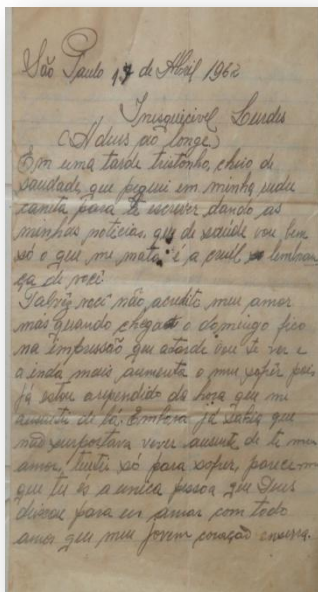 São Paulo 17 de Abril 1962
Inesquicivel Lurdes
(Adeus ao longe)
Em uma tarde tristonho, cheio de
saudade que peguei em minha
caneta para te escrever dando as
minhas noticias, que de saúde vou bem
só o que me mata é a cruel lembran
ça de voci
Talviz voci não acredita meu amor
mais quando chega o domingo fico
na impressão que atarde vou te ver e
ainda mais aumenta o meu sofrer pois
já estou arependido da hora que me
ausentei de lá. Embora já sabia que
não surportava viver ausente de ti meu
amor, tentei só para sofrer, parece-me
que tu és a unica pessoa que Deus
deixou para eu amar com todo
amor que meu jovem coração encerra.